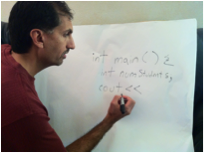 int main() {
int numStudents;
cout <<